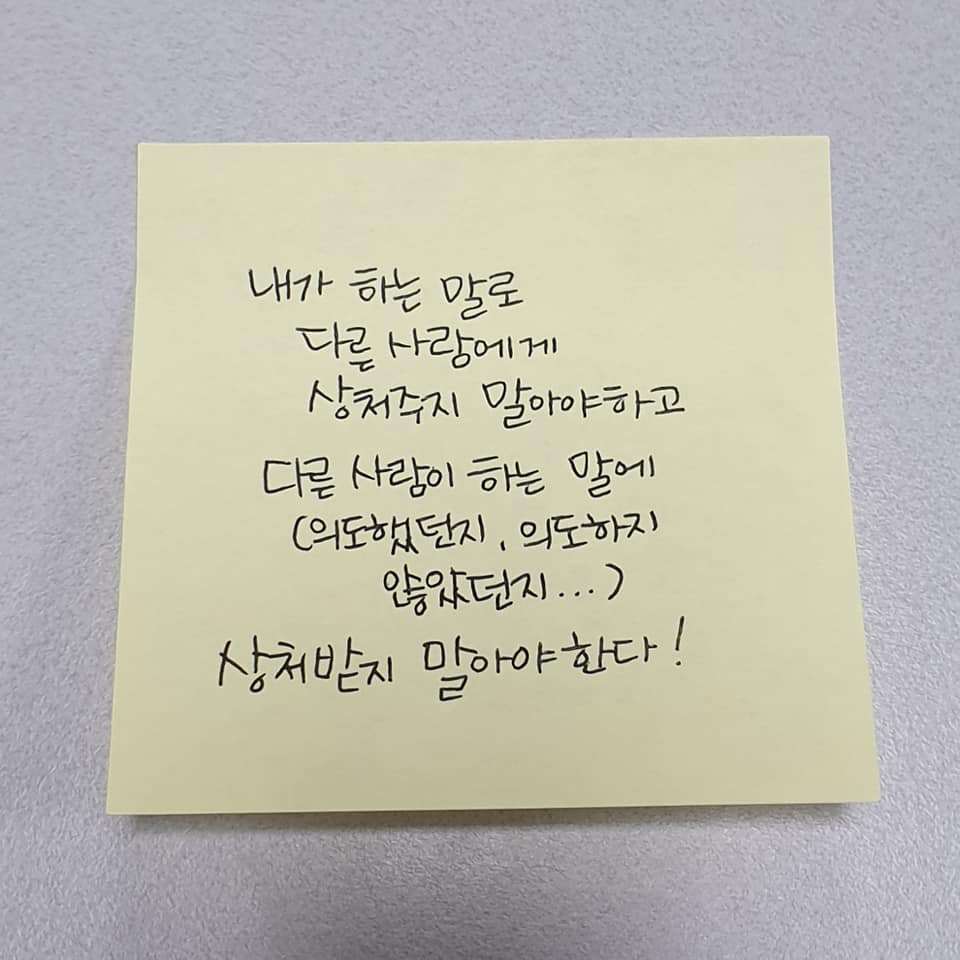 내가 하는 말로
다른 사람에게
상처주지 말아야하고
다른 사람이 하는 말에
(의도했던지, 의도하지
않았던지...)
상처받지 말아야한다!